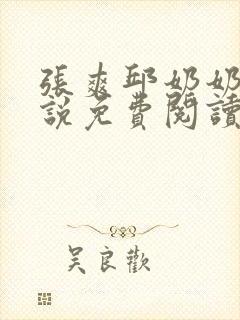 張爽邱奶奶
說免費閱讀
吴良歡